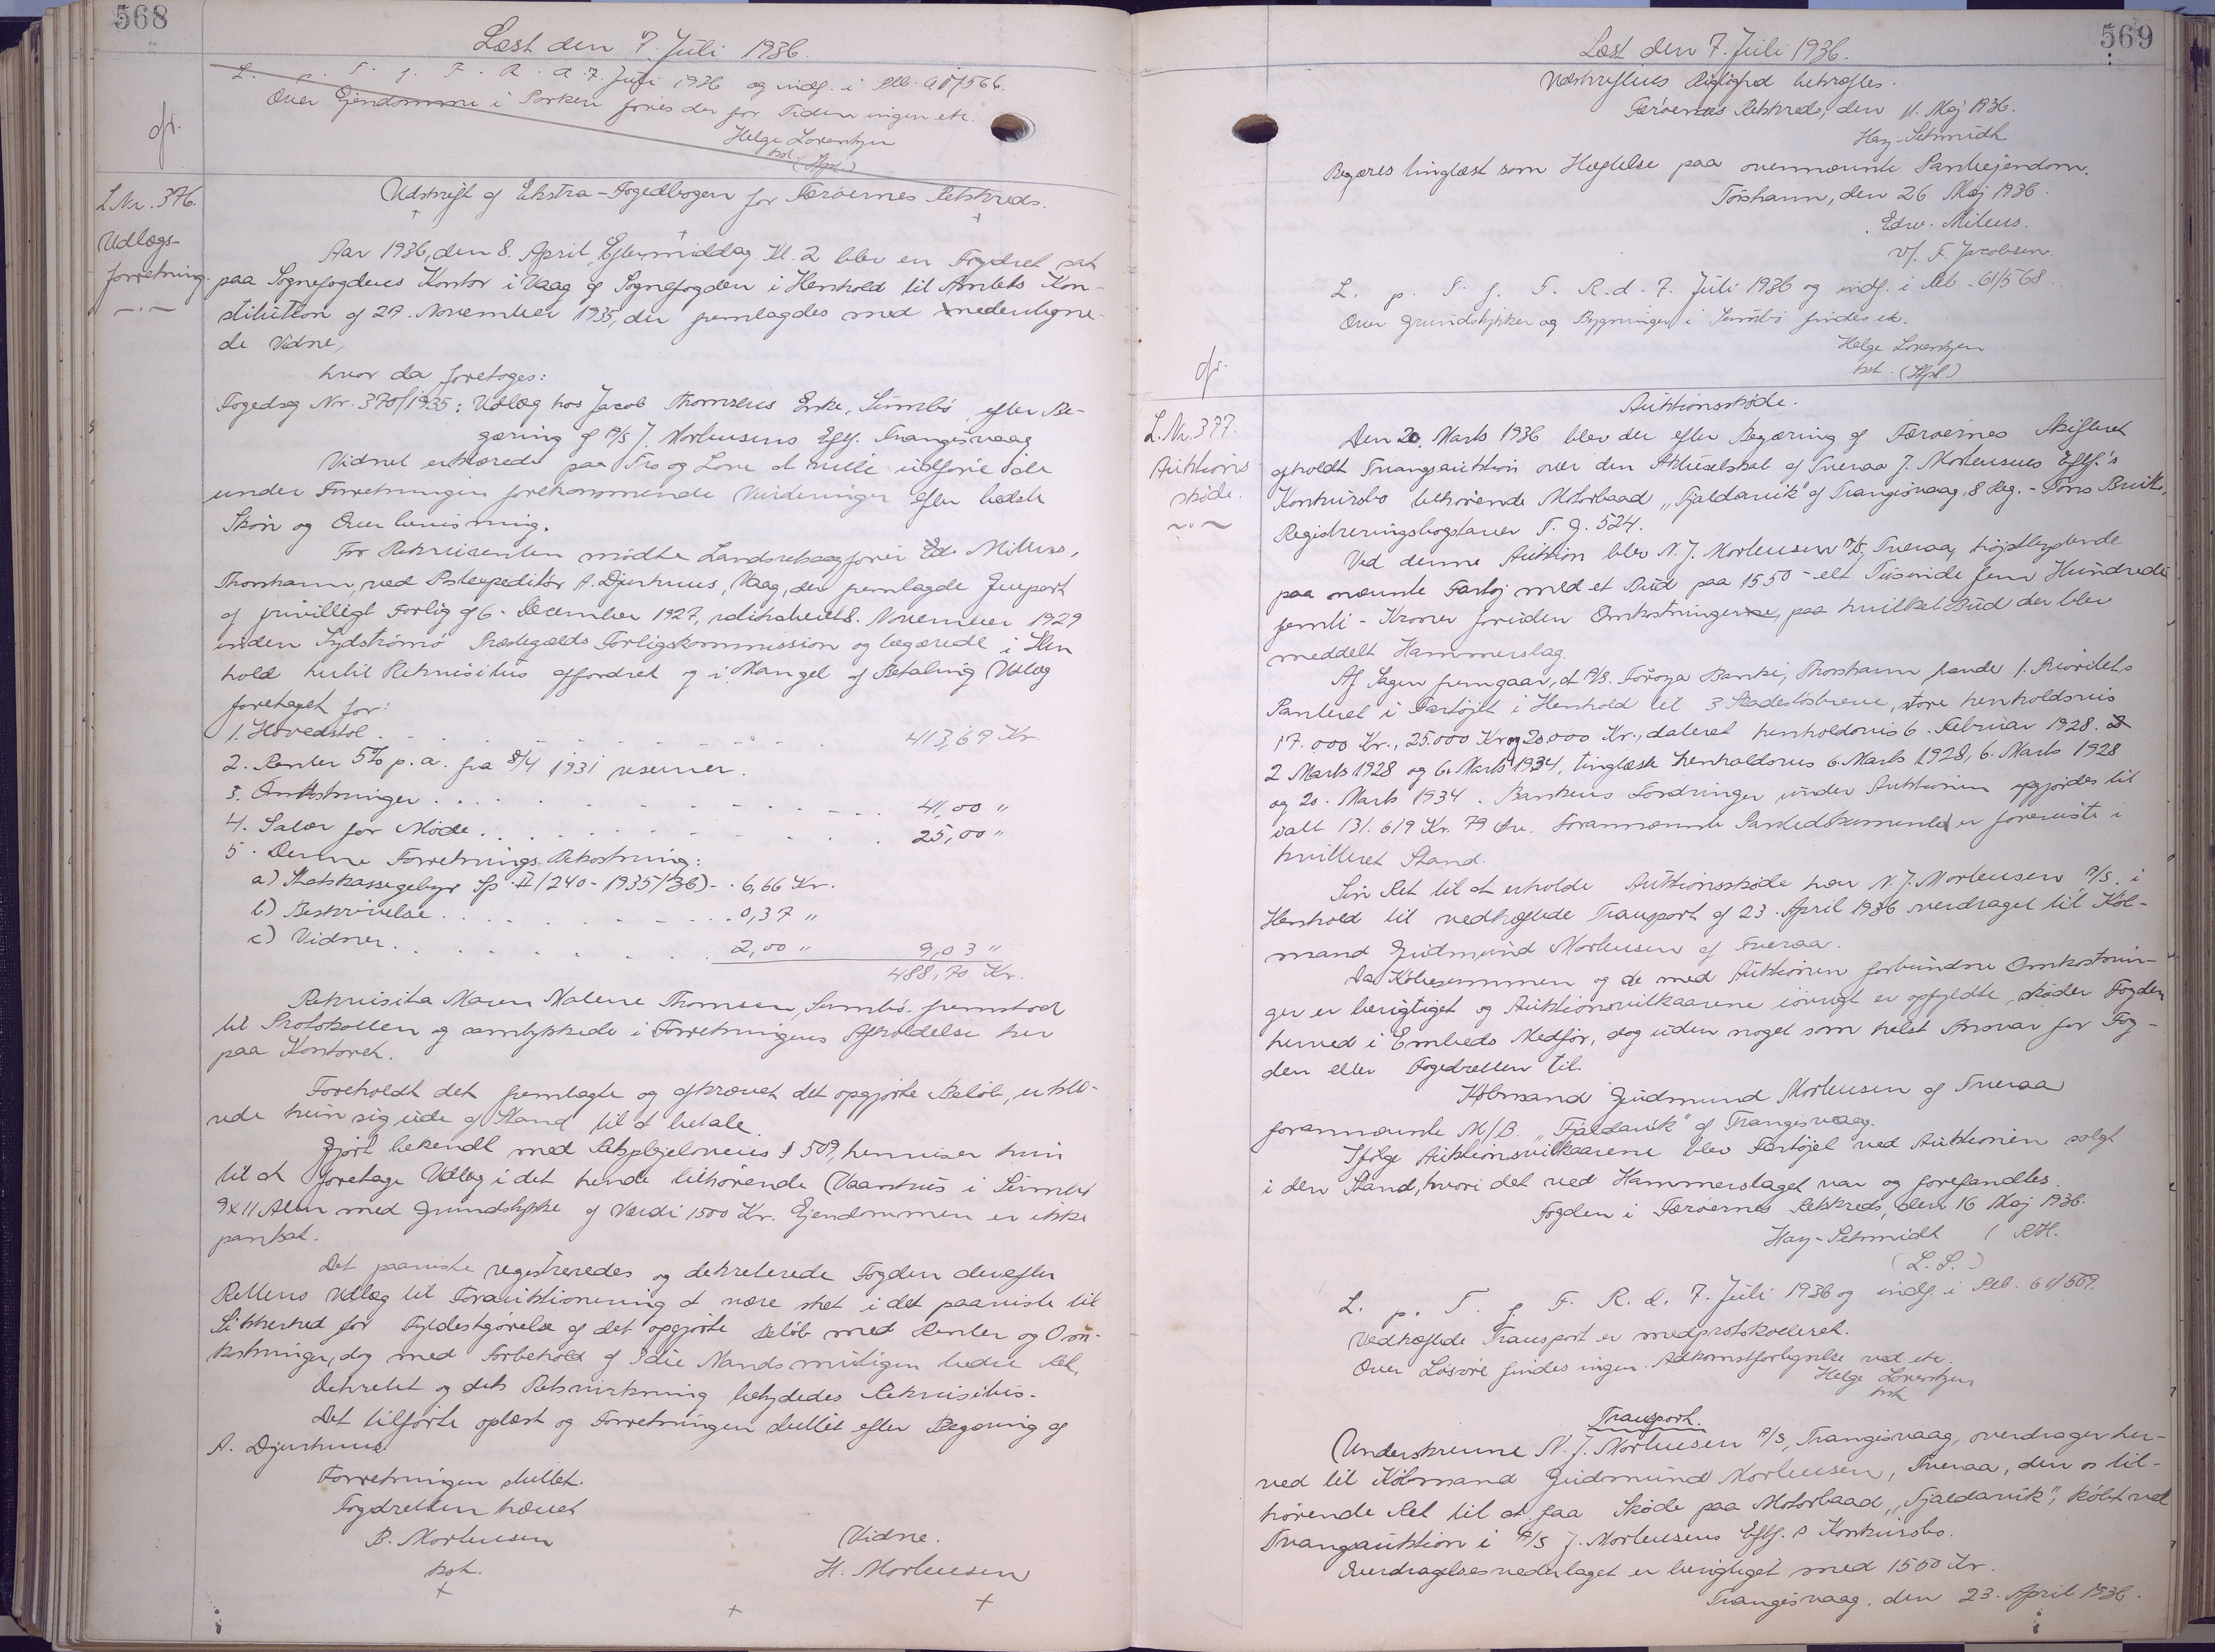 568
Læst den 7. Juli 1936.
L. p. T. f. F. R. d. 7. Juli 1936 og indf. i Reb.
Over Ejendomme i Porkeri føres der for Tiden ingen etc.
Helge Lorentzen
kst. (Spl.)
fr.
L. Nr. 376.
Udlægs-
forretning.
Udskrift af Ekstra-Fogedbogen for Færøernes Retskreds.
Aar 1936, den 8. April, Eftermiddag Kl. 2 blev en Fogdret sat
paa Sognefogdens Kontor i Vaag af Sognefogden i Henhold til Amtets Kon-
stitution af 29. November 1935, der fremlagdes med nedentegne-
de Vidne,
hvor da foretoges:
Fogedsag Nr. 370/1935: Udlæg hos Jacob Thomsens Enke, Sumbø, efter Be-
gæring af A/S J. Mortensens Eftf. Trangisvaag
Vidnet erklærede paa Tro og Love at ville udføre de
under Forretningen forekommende Vurderinger efter bedste
Skøn og Overbevisning.
For Rekvirenten mødte Landsretssagfører Edw. Mitens,
Thorshavn, ved Postexpeditør A. Djurhuus, Vaag, der fremlagde Genpart
af frivilligt Forlig af 6. December 1927, 8. November 1929
inden Sydstrømø Præstegælds Forligskommission og begærede i Hen
hold hertil Rekvisitus affordret og i Mangel af Betaling Udlæg
foretaget for:
1. Hovedstol . . . . . . 413,69 Kr.
2. Renter 5% p.a. fra 8/4 1931
3. Omkostninger . . . . . . 41,00 "
4. Salær for Møde . . . . . . 25,00 "
5. Denne Forretnings Bekostning:
a) Statskassegebyr Sp. II/240-1935/36) - 6,66 Kr.
b) Beskrivelse . . . . . . 0,37 "
c) Vidner . . . . . . 2,00 " 9,03 "
488,70 Kr.
Rekvisita Maren Malene Thomsen, Sumbø fremstod
til Protokollen og samtykkede i Forretningens Afholdelse her
paa Kontoret.
Foreholdt det fremlagte og afkrævet det opgjorte Beløb, erklæ-
rede hun sig ude af Stand til at betale.
Gjort bekendt med Retsplejelovens § 509, henviser hun
til at foretage Udlæg i det hende tilhørende Vaanhus i Sumbø
9x11 Alen med Grundstykke af Værdi 1500 Kr. Ejendommen er ikke
pantsat.
Det paaviste registreredes og dekreterede Fogden derefter
Rettens Udlæg til Forauktionering at være sket i det paaviste til
Sikkerhed for Fyldestgørelse af det opgjorte Beløb med Renter og Om-
kostninger, dog med Forbehold af 3die Mands muligen bedre Ret.
Dekretet og dets Retsvirkning betydedes Rekvisitus.
Det tilførte oplæst og Forretningen sluttet efter Begæring af
A. Djurhuus.
Forretningen sluttet.
Fogdretten hævet
B. Mortensen
kst.
Vidne.
H. Mortensen
569
Læst den 7. Juli 1936.
Udskriftens Rigtighed bekræftes.
Færøernes Retskreds, den 11. Maj 1936.
Hay-Schmidt
Begæres tinglæst som Hæftelse paa ovennævnte Panteejendom.
Tórshavn, den 26 Maj 1936.
Edw. Mitens.
v/. F. Jacobsen.
L. p. T. f. F. R. d. 7. Juli 1936 og indf. i Reb. 61/568
Over Grundstykker og Bygninger i Sumbø findes etc.
Helge Lorentzen
kst. (Spl.)
fr.
L. Nr. 377.
Auktions
skøde.
Auktionsskøde.
Den 20. Marts 1936 blev der efter Begæring af Færøernes Skifteret
afholdt Tvangsauktion over den Aktieselskab af Tveraa J. Mortensens Eftf.'s
Konkursbo tilhørende Motorbaad "Fjaldavik" af Trangisvaag, 8 Reg.-Tons Brutto,
Registreringsbogstaver T. G. 524.
Ved denne Auktion blev N. J. Mortensen A/S, Tveraa, højstbydende
paa nævnte Fartøj med et Bud paa 1550 - et Tusinde fem Hundrede
femti - Kroner foruden Omkostningerne, paa hvilket Bud der blev
meddelt Hammerslag.
Af Sagen fremgaar, at A/S. Føroya Banki, Thorshavn havde 1. Prioritets
Panteret i Fartøjet i Henhold til 3 Skadesløsbreve, store henholdsvis
17.000 Kr., 25.000 Kr og 20.000 Kr., dateret henholdsvis 6. Februar 1928.
2 Marts 1928 og 6. Marts 1934, tinglæst henholdsvis 6. Marts 1928, 6. Marts 1928
og 20. Marts 1934. Bankens Fordringer under Auktionen opgjordes til
ialt 131.619 Kr. 79 Øre. Forannævnte Pantedokumenter er foreviste i
kvitteret Stand.
Sin Ret til at erholde Auktionsskøde har N. J. Mortensen A/S. i
Henhold til vedhæftede Transport af 23. April 1936 overdraget til Køb-
mand Gudmund Mortensen af Tveraa.
Da Købesummen og de med Auktionen forbundne Omkostnin-
ger er berigtiget og Auktionsvilkaarene iøvrigt er opfyldte, skøder Fogden
herved i Embeds Medfør, dog uden noget som helst Ansvar for Fog-
den eller Fogedretten til.
Købmand Gudmund Mortensen af Tveraa
forannævnte M/B. "Fjaldavik" af Trangisvaag.
Ifølge Auktionsvilkaarene blev Fartøjet ved Auktionen solgt
i den Stand, hvori det ved Hammerslaget var og forefandtes.
Fogden i Færøernes Retskreds, den 16 Maj 1936.
Hay-Schmidt / RH.
(L. S.)
L. p. T. f. F. R. d. 7. Juli 1936 og indf. i Reb. 61/569.
Vedhæftede Transport er medprotokolleret.
Over Løsøre findes ingen Adkomstforlignelse ved etc.
Helge Lorentzen
kst
Transport.
Underskrevne N. J. Mortensen A/S, Trangisvaag, overdrager her-
ved til Købmand Gudmund Mortensen, Tveraa, den os til-
hørende Ret til at faa Skøde paa Motorbaad "Fjaldavik", købt ved
Tvangsauktion i A/S J. Mortensens Eftf.s Konkursbo.
Overdragelsesvederlaget er berigtiget med 1550 Kr.
Trangisvaag, den 23. April 1936.